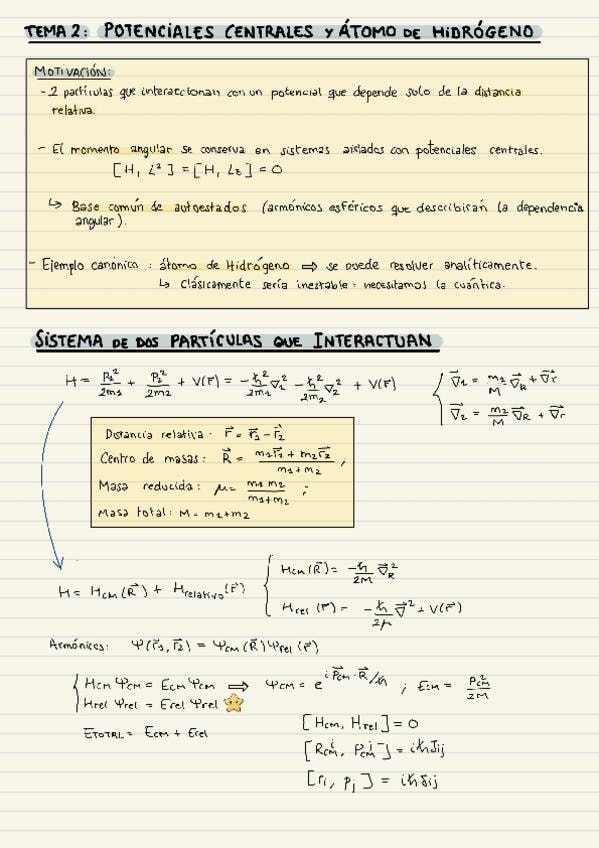 TEMA 2: POTENCIALES CENTRALES Y ÁTOMO DE HIDRÓGENO
MOTIVACIÓN:
- 2 partículas que interaccionan con un potencial que depende solo de la distancia
relativa.
- El momento angular se conserva en sistemas aislados con potenciales centrales.
[H, L²] = [H, Lz] = 0
↳ Base común de autoestados (armónicos esféricos que describirán la dependencia
angular).
- Ejemplo canónico: átomo de Hidrógeno ⟹ se puede resolver analíticamente.
↳ Clásicamente sería inestable: necesitamos la cuántica.
SISTEMA DE DOS PARTÍCULAS QUE INTERACTUAN
H = p₁²/2m₁ + p₂²/2m₂ + V(r⃗) = -ħ²/2m₁ ∇₁² - ħ²/2m₂ ∇₂² + V(r⃗)
{ ∇⃗₁ = m₁/M ∇⃗R + ∇⃗r
∇⃗₂ = m₂/M ∇⃗R + ∇⃗r
Distancia relativa: r⃗ = r⃗₁ - r⃗₂
Centro de masas: R⃗ = (m₁r⃗₁ + m₂r⃗₂)/(m₁+m₂) ;
Masa reducida: μ = m₁m₂/(m₁+m₂) ;
Masa total: M = m₁+m₂
H = HCM(R⃗) + Hrelativo(r⃗)
{ HCM(R⃗) = -ħ/2M ∇⃗R²
Hrel(r⃗) = -ħ/2μ ∇⃗² + V(r⃗)
Armónicos: Ψ(r⃗₁, r⃗₂) = ΨCM(R⃗) Ψrel(r⃗)
{ HCM ΨCM = ECM ΨCM ⟹ ΨCM = e^(i P⃗CM · R⃗/ħ) ; ECM = P²CM/2M
Hrel Ψrel = Erel Ψrel
ETOTAL = ECM + Erel
[HCM, Hrel] = 0
[RⁱCM, PʲCM] = iħδij
[ri, pj] = iħδij